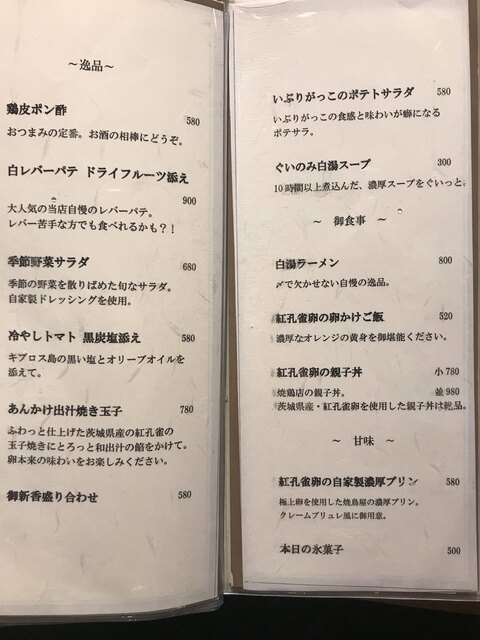 ～逸品～
鶏皮ポン酢 580
おつまみの定番。お酒の相棒にどうぞ。
白レバーパテ ドライフルーツ添え
900
大人気の当店自慢のレバーパテ。
レバー苦手な方でも食べれるかも？！
季節野菜サラダ 680
季節の野菜を散りばめた旬なサラダ。
自家製ドレッシングを使用。
冷やしトマト 黒炭塩添え 580
キプロス島の黒い塩とオリーブオイルを
添えて。
あんかけ出汁焼き玉子 780
ふわっと仕上げた茨城県産の紅孔雀の
玉子焼きにとろっと和出汁の餡をかけて。
卵本来の味わいをお楽しみください。
御新香盛り合わせ 580
いぶりがっこのポテトサラダ 580
いぶりがっこの食感と味わいが癖になる
ポテサラ。
ぐいのみ白湯スープ 300
10時間以上煮込んだ、濃厚スープをぐいっと。
～ 御食事 ～
白湯ラーメン 800
〆で欠かせない自慢の逸品。
紅孔雀卵の卵かけご飯 520
濃厚なオレンジの黄身を御堪能ください。
紅孔雀卵の親子丼 小 780
焼鶏店の親子丼。 並 980
茨城県産・紅孔雀卵を使用した親子丼は絶品。
～ 甘味 ～
紅孔雀卵の自家製濃厚プリン 580
極上卵を使用した焼鳥屋の濃厚プリン。
クレームブリュレ風に御用意。
本日の氷菓子 500